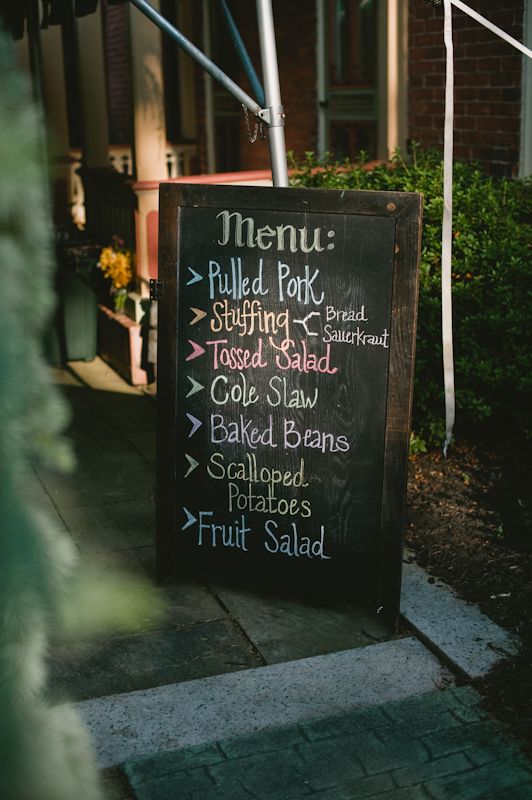 Menu:
> Pulled Pork
> Stuffing < Bread
Sauerkraut
> Tossed Salad
> Cole Slaw
> Baked Beans
> Scalloped
Potatoes
> Fruit Salad